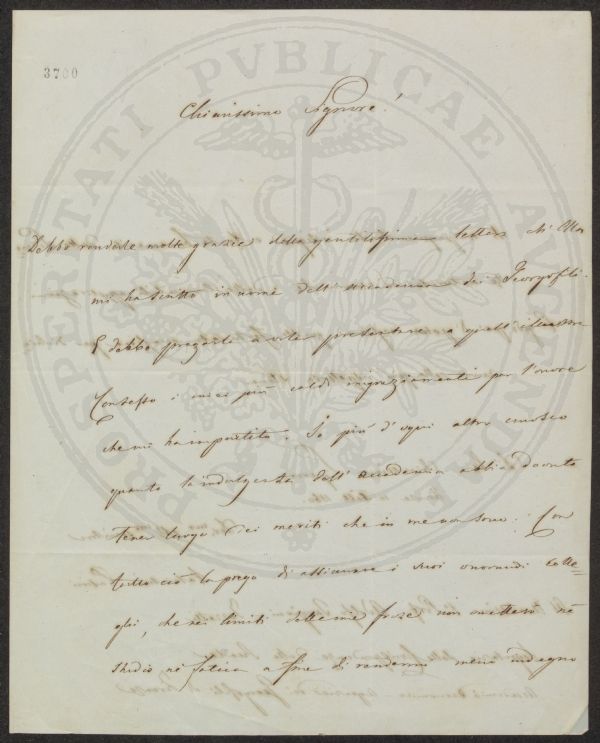 3700
PROSPERITATI PVBLICAE AVGENDAE
Chiarissimo Signore!
Debbo renderle molte grazie della gentilissima lettera ch' Ella
mi ha scritto in nome dell' Accademia dei Georgofili.
E debbo pregarla a voler presentare a quell' illustre
Consesso i miei più caldi ringraziamenti per l'onore
che mi ha impartito. Io più d'ogni altro conosco
quanto l'indulgenza dell' Accademia abbia dovuto
tener luogo dei meriti che in me non sono. Con
tutto ciò la prego di assicurare i suoi onorandi Colle=
ghi, che nei limiti delle mie forze non ometterò nè
studio nè fatica a fine di rendermi meno indegno